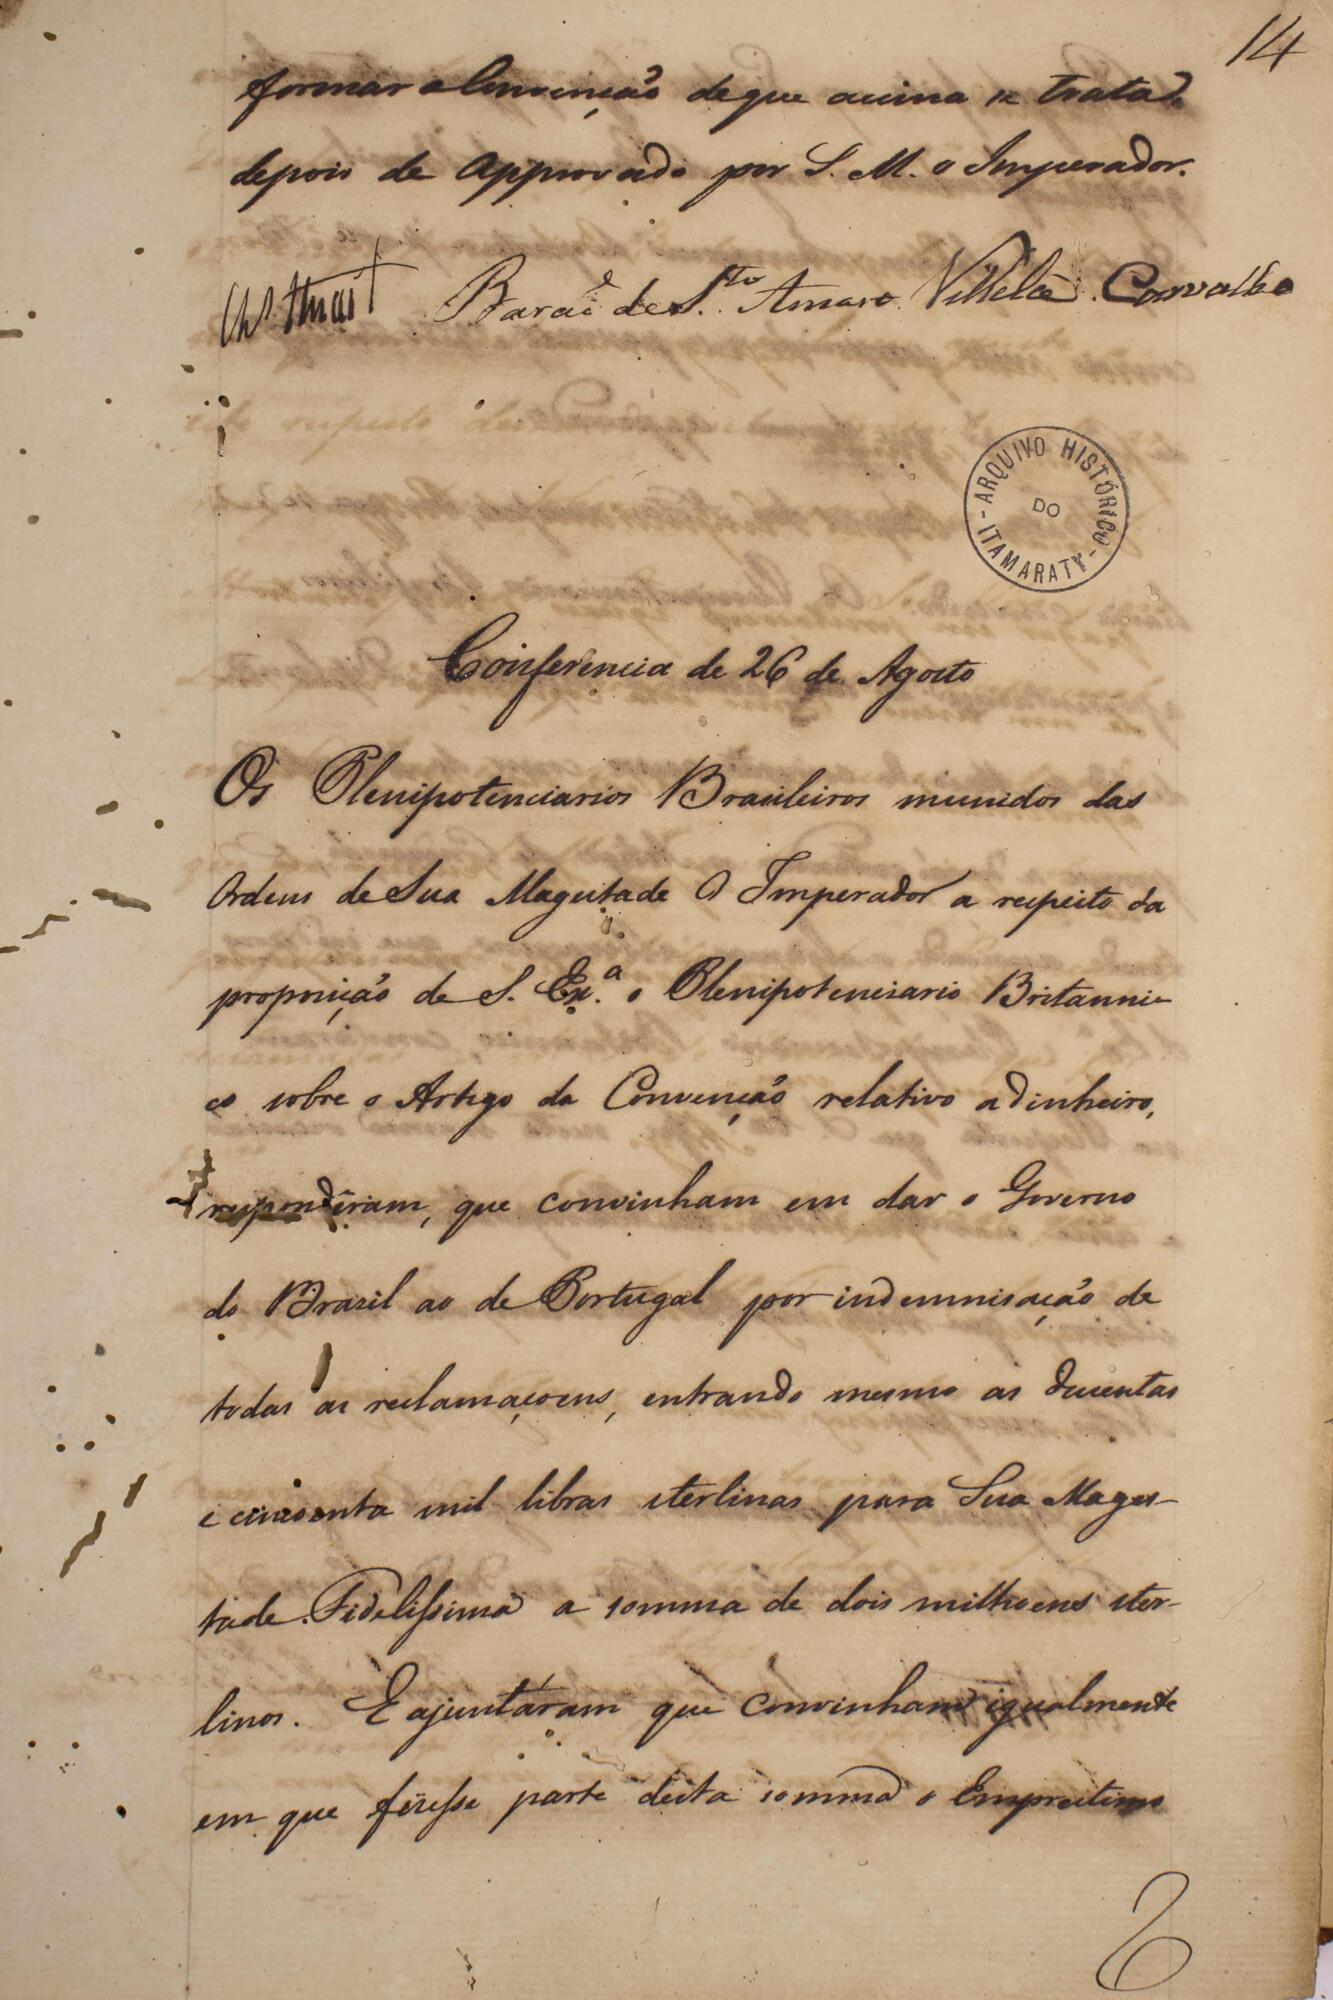 14
formar a Convenção de que acima se trata,
depois de Approvado por S. M. o Imperador.
Chs Stuart Barão de S.to Amaro. Villela. Carvalho
ARQUIVO HISTÓRICO
DO
ITAMARATY
Conferencia de 26 de Agosto
Os Plenipotenciarios Brasileiros munidos das
Ordens de Sua Magestade O Imperador a respeito da
proposição de S. Ex.a o Plenipotenciario Britanni-
co sobre o Artigo da Convenção relativo a dinheiro,
respondêram, que convinham em dar o Governo
do Brazil ao de Portugal por indemnisação de
todas as reclamaçoens, entrando mesmo as duzentas
e cincoenta mil libras sterlinas para Sua Mages-
tade Fidelissima a somma de dois milhoens ster-
linos. E ajuntáram que convinham igualmente
em que fizesse parte desta somma o Emprestimo